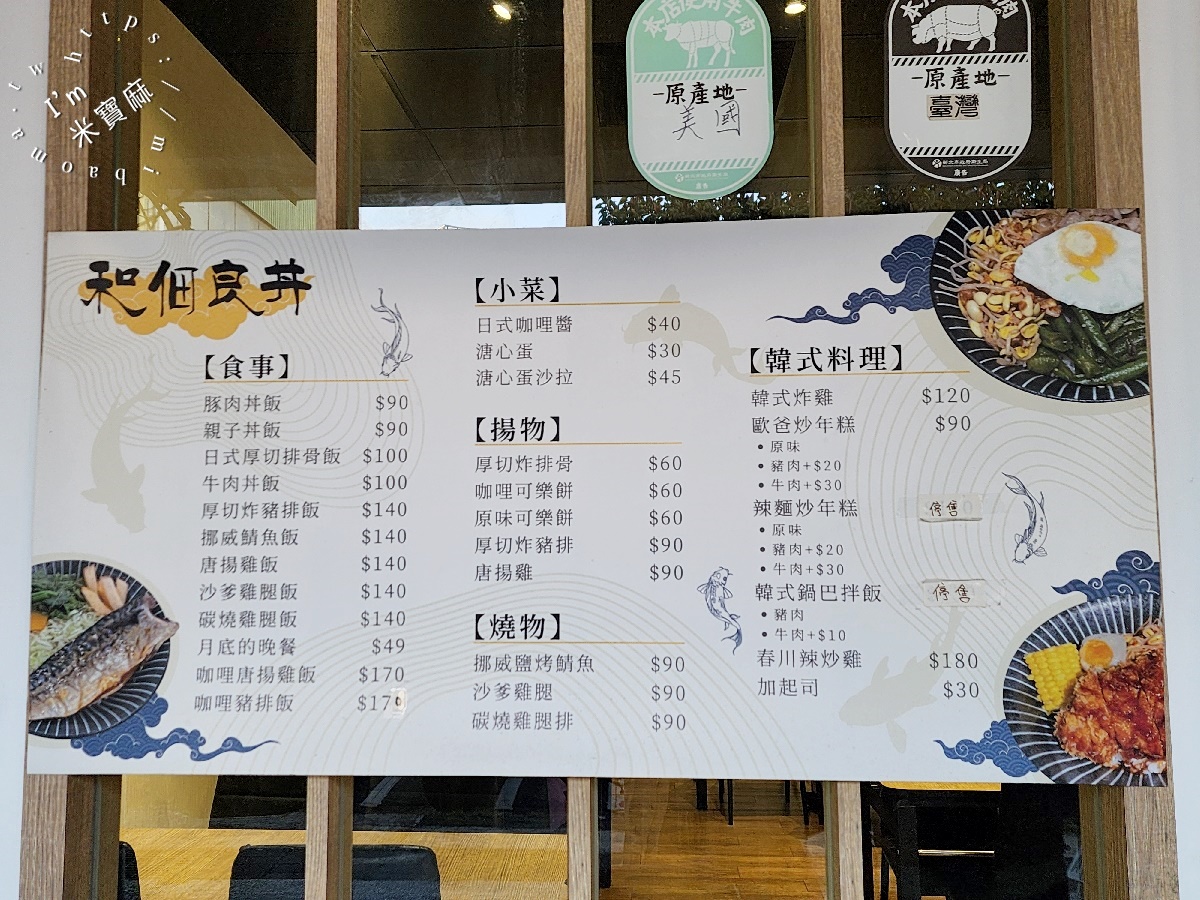 https://mibaoma.tw
I'm
米寶麻
本店使用牛肉
-原產地-
美國
新北市政府衛生局
廣告
-原產地-
臺灣
新北市政府衛生局
廣告
和佃良丼
【食事】
豚肉丼飯 $90
親子丼飯 $90
日式厚切排骨飯 $100
牛肉丼飯 $100
厚切炸豬排飯 $140
挪威鯖魚飯 $140
唐揚雞飯 $140
沙爹雞腿飯 $140
碳燒雞腿飯 $140
月底的晚餐 $49
咖哩唐揚雞飯 $170
咖哩豬排飯 $170
【小菜】
日式咖哩醬 $40
溏心蛋 $30
溏心蛋沙拉 $45
【揚物】
厚切炸排骨 $60
咖哩可樂餅 $60
原味可樂餅 $60
厚切炸豬排 $90
唐揚雞 $90
【燒物】
挪威鹽烤鯖魚 $90
沙爹雞腿 $90
碳燒雞腿排 $90
【韓式料理】
韓式炸雞 $120
歐爸炒年糕 $90
•原味
•豬肉+$20
•牛肉+$30
辣麵炒年糕 停售
•原味
•豬肉+$20
•牛肉+$30
韓式鍋巴拌飯 停售
•豬肉
•牛肉+$10
春川辣炒雞 $180
加起司 $30